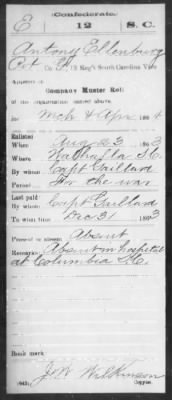 Confederate
E 12 S. C.
Antony Ellenburg
Pvt Co. 12 Reg't South Carolina Vols
Appears on
Company Muster Roll
of the organization named above,
for Mch & Apr, 1864
Enlisted
When Aug 23 1863
Where Walhalla S.C.
By whom Capt Gaillard
Period For the war
Last paid
By whom Capt Gaillard
To what time Dec 31 1863
Present or absent Absent
Remarks: Absent in hospital
at Columbia S.C.
Book mark:
J. W. Wilkinson
(642) Copyist.